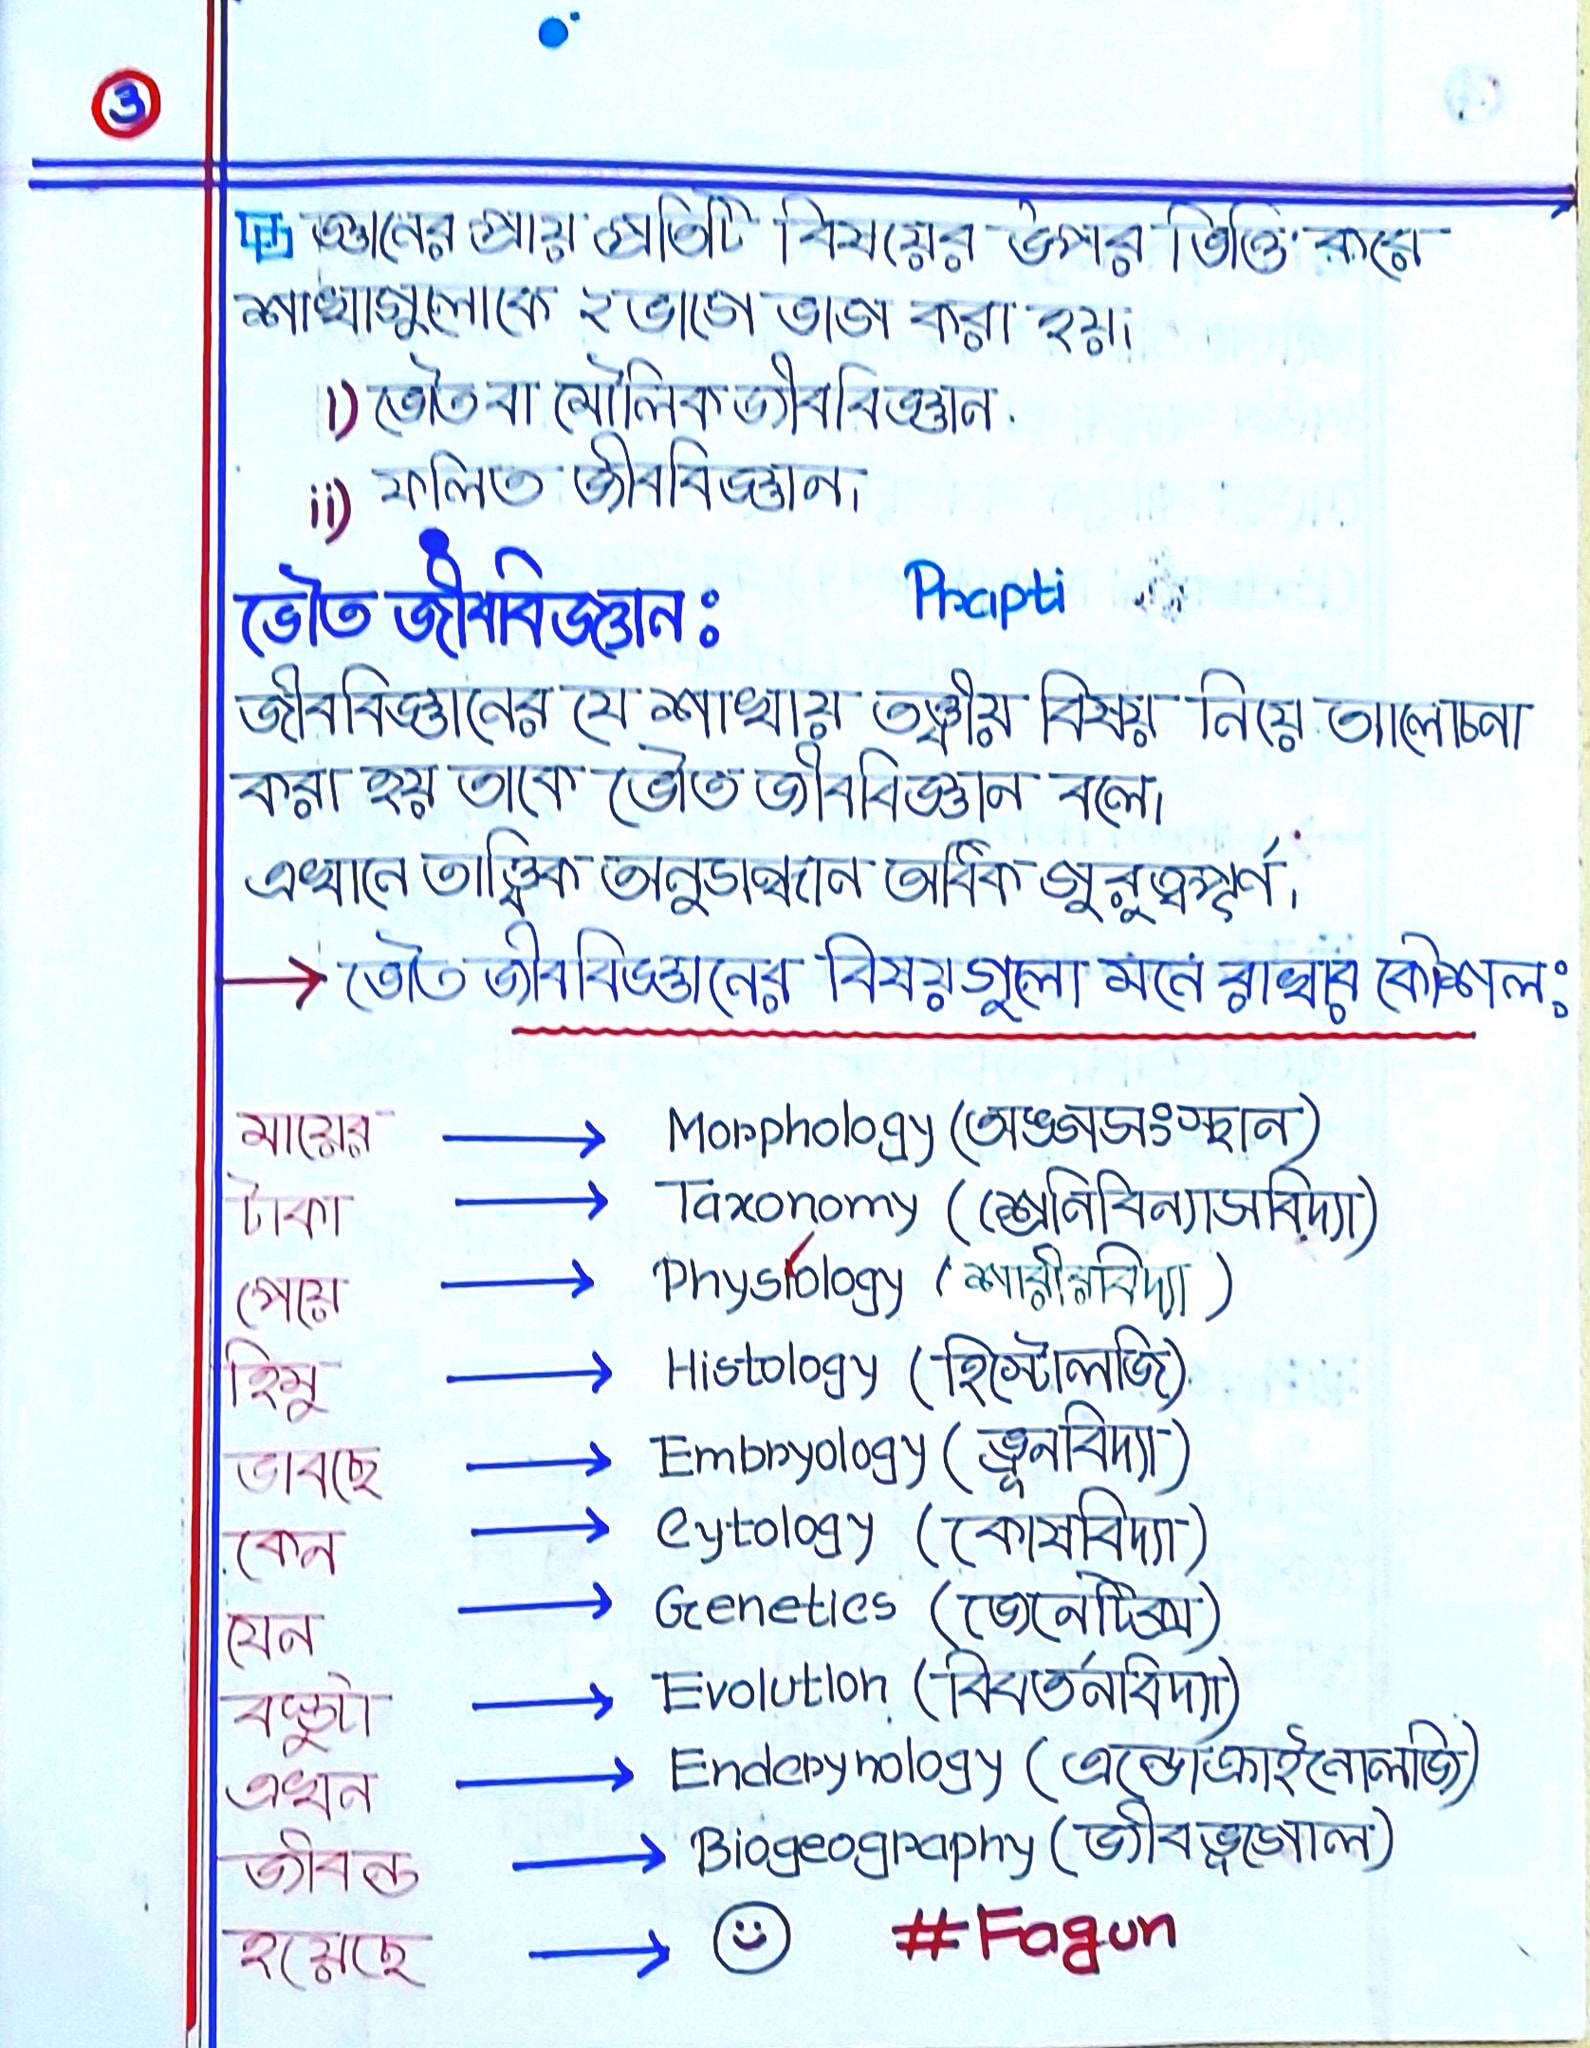 3
জ্ঞানের প্রায় প্রতিটি বিষয়ের উপর ভিত্তি করে
শাখাগুলোকে ২ ভাগে ভাগ করা হয়।
i) ভৌত বা মৌলিক জীববিজ্ঞান.
ii) ফলিত জীববিজ্ঞান।
ভৌত জীববিজ্ঞান:
Prapti
জীববিজ্ঞানের যে শাখায় তত্ত্বীয় বিষয় নিয়ে আলোচনা
করা হয় তাকে ভৌত জীববিজ্ঞান বলে।
এখানে তাত্ত্বিক অনুসন্ধান অধিক গুরুত্বপূর্ণ।
→ ভৌত জীববিজ্ঞানের বিষয়গুলো মনে রাখার কৌশল:
মায়ের → Morphology (অঙ্গসংস্থান)
টাকা → Taxonomy (শ্রেনিবিন্যাসবিদ্যা)
পেয়ে → Physiology (শারীরবিদ্যা)
হিমু → Histology (হিস্টোলজি)
ভাবছে → Embryology (ভ্রূনবিদ্যা)
কেন → Cytology (কোষবিদ্যা)
যেন → Genetics (জেনেটিক্স)
বল্টুটা → Evolution (বিবর্তনবিদ্যা)
এখন → Endcrynology (এন্ডোক্রাইনোলজি)
জীবন্ত → Biogeography (জীবভূগোল)
হয়েছে → #Fagun